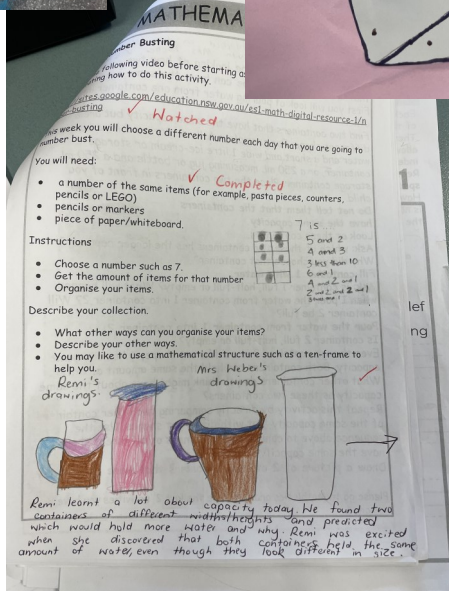 MATHEMA
mber Busting
following video before starting a
ing how to do this activity.
sites.google.com/education.nsw.gov.au/es1-math-digital-resource-1/n
-busting
Watched
his week you will choose a different number each day that you are going to
number bust.
You will need:
Completed
a number of the same items (for example, pasta pieces, counters,
pencils or LEGO)
pencils or markers
piece of paper/whiteboard.
7 is
5 and 2
4 and 3
3 less than 10
6 and 1
4 and 2 and 1
2 and 2 and 2 and 1
Instructions
Choose a number such as 7.
Get the amount of items for that number
Organise your items.
Describe your collection.
What other ways can you organise your items?
Describe your other ways.
You may like to use a mathematical structure such as a ten-frame to
help you.
Remi's
drawings.
Mrs Weber's
drawings
Remi learnt a lot about capacity today. We found two
containers of different widths/heights and predicted
which would hold more water and why. Remi was excited
when she discovered that both containers held the same
amount of water, even though they look different in size.
1
lef
ng